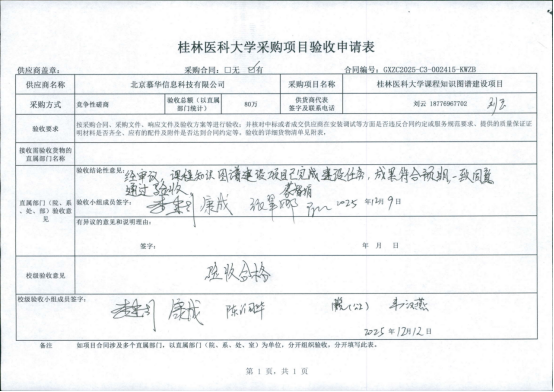 桂林医科大学采购项目验收申请表
供应商盖章： 采购合同：□无 ☑有 合同编号：GXZC2025-C3-002415-KWZB
供应商名称 北京慕华信息科技有限公司 采购项目名称 桂林医科大学课程知识图谱建设项目
采购方式 竞争性磋商 验收总额（以直属部门统计） 80万 供货商代表签字及联系电话 刘云 18776967702 刘云
验收要求 按采购合同、采购文件、响应文件及验收方案等进行验收；并核对中标或者成交供应商在安装调试等方面是否违反合同约定或服务规范要求、提供的质量保证证明材料是否齐全、应有的配件及附件是否达到合同约定等。验收的详细货物清单见附表。
接收需验收货物的直属部门名称
直属部门（院、系、处、部）验收意见
验收结论性意见：
经审议，课程知识图谱建设项目已完成建设任务，成果符合预期，一致同意
通过验收
验收小组成员签字： 康成 2025年12月9日
有异议的意见和说明理由：
签字： 年 月 日
校级验收意见 验收合格
校级验收小组成员签字：
康成
2025年12月12日
备注 如项目合同涉及多个直属部门，以直属部门（院、系、处、室）为单位，分开组织验收，分开填写此表。
第 1 页，共 1 页